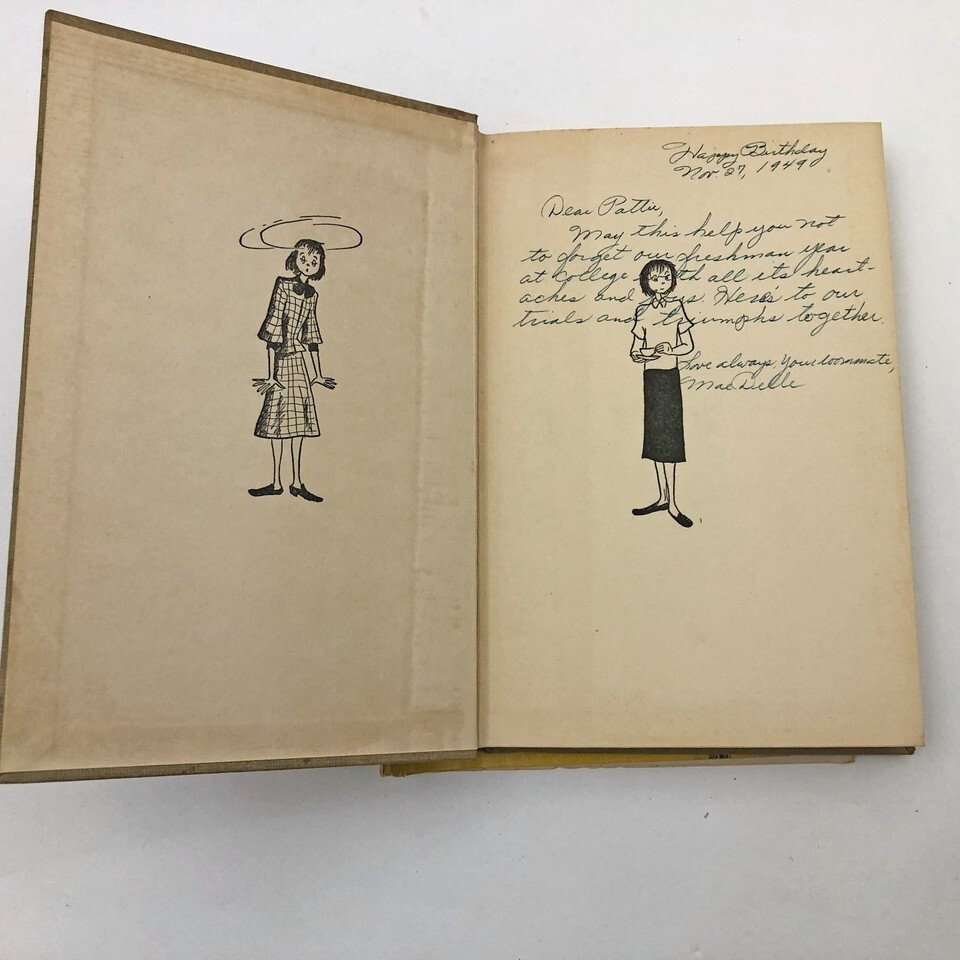 Happy Birthday
Nov 27, 1949
Dear Pattie,
May this help you not
to forget our freshman year
at College with all its heart-
aches and joys. Here's to our
trials and triumphs together.
Love always, your roommate,